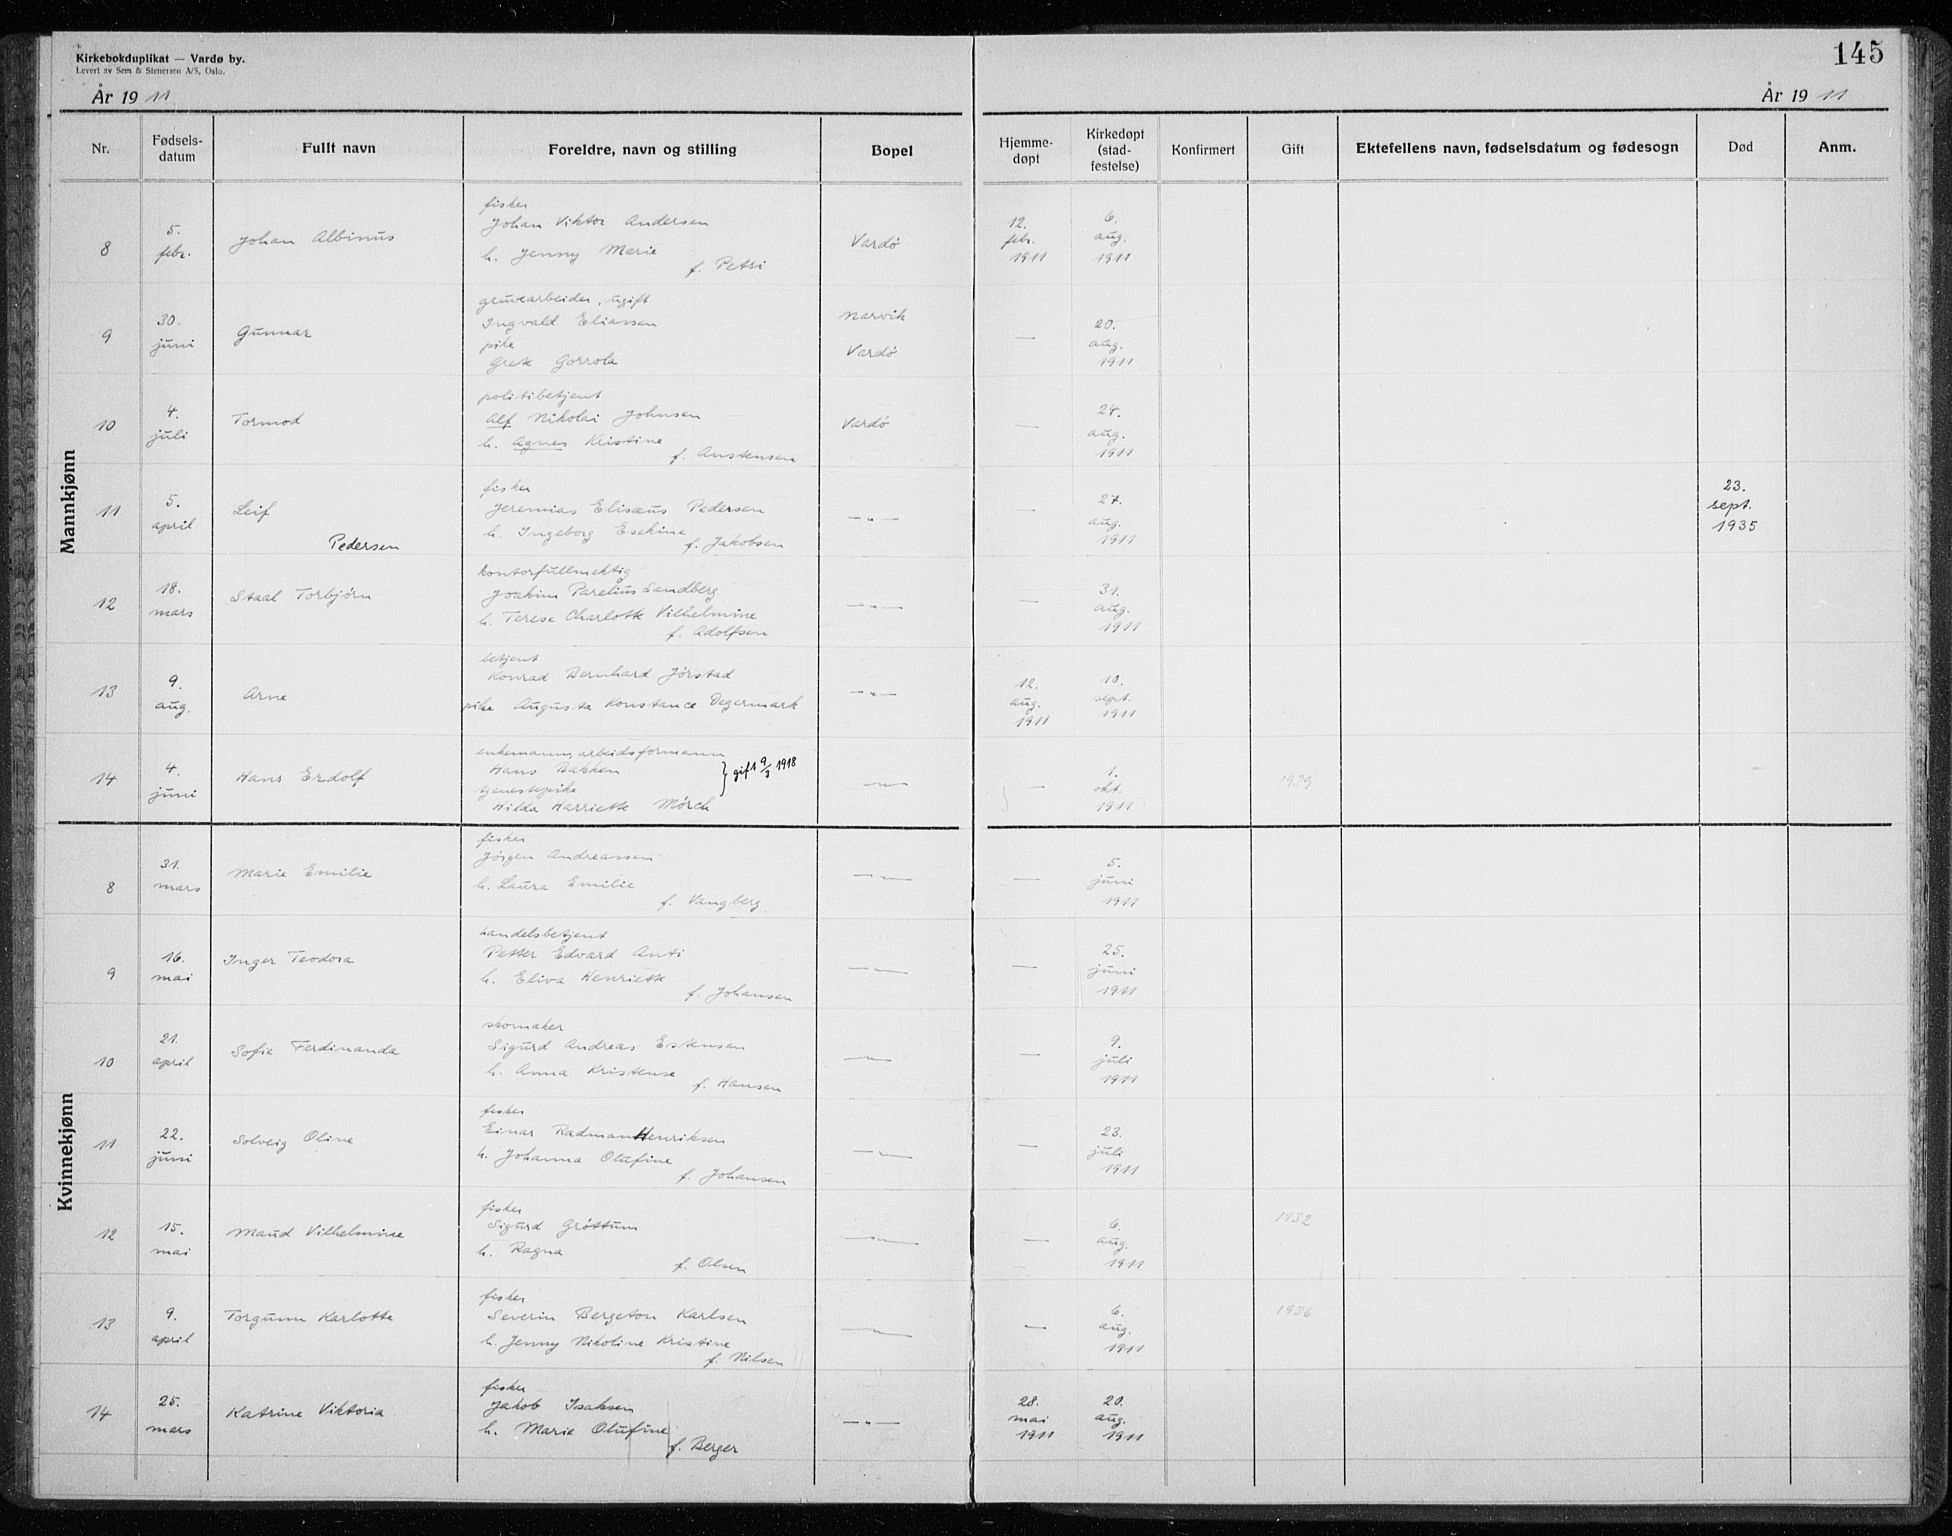 Kirkebokduplikat — Vardø by.
Levert av Sem & Stenersen A/S, Oslo.
145
År 1911
År 1911
Nr.
Fødsels-
datum
Fullt navn
Foreldre, navn og stilling
Bopel
Hjemme-
døpt
Kirkedøpt
(stad-
festelse)
Konfirmert
Gift
Ektefellens navn, fødselsdatum og fødesogn
Død
Anm.
Mannkjønn
8
5.
febr.
Johan Albinus
fisker
Johan Viktor Andersen
h. Jenny Marie
f. Petri
Vardø
12.
febr.
1911
6.
aug.
1911
9
30.
juni
Gunnar
gruvearbeider, ugift
Ingvald Eliassen
pike
Grete Gorrola
Narvik
Vardø
—
20.
aug.
1911
10
4.
juli
Tormod
politibetjent
Alf Nikolai Johnsen
h. Agnes Kristine
f. Anstensen
Vardø
—
24.
aug.
1911
11
5.
april
Leif
Pedersen
fisker
Jeremias Elisæus Pedersen
h. Ingeborg Esekine
f. Jakobsen
—"—
—
27.
aug.
1911
23.
sept.
1935
12
18.
mars
Staal Torbjørn
kontorfullmektig
Joakim Parelius Sandberg
h. Terese Charlotte Vilhelmine
f. Adolfsen
—"—
—
31.
aug.
1911
13
9.
aug.
Arne
betjent
Konrad Bernhard Jørstad
pike Augusta Konstance Degermark
—"—
12.
aug.
1911
10.
sept.
1911
14
4.
juni
Hans Erdolf
enkemann, arbeidsformann
Hans Bakken
tjenestepike
Hilda Harriette Mörch
} gift 9/3 1918
—"—
—
1.
okt.
1911
1939
Kvinnekjønn
8
31.
mars
Marie Emilie
fisker
Jörgen Andreassen
h. Laura Emilie
f. Vangberg
—"—
—
5.
juni
1911
9
16.
mai
Inger Teodora
handelsbetjent
Petter Edvard Anti
h. Eliva Henriette
f. Johansen
—"—
—
25.
juni
1911
10
21.
april
Sofie Ferdinanda
skomaker
Sigurd Andreas Estensen
h. Anna Kristense
f. Hansen
—"—
—
9.
juli
1911
11
22.
juni
Solveig Oline
fisker
Einar Radman Henriksen
h. Johanna Olufine
f. Johansen
—"—
—
23.
juli
1911
12
15.
mai
Maud Vilhelmine
fisker
Sigurd Gröttum
h. Ragna
f. Olsen
—"—
—
6.
aug.
1911
1932
13
9.
april
Torgunn Karlotte
fisker
Severin Bergeton Karlsen
h. Jenny Nikoline Kristine
f. Nilsen
—"—
—
6.
aug.
1911
1936
14
25.
mars
Katrine Viktoria
fisker
Jakob Isaksen
h. Marie Olufine
f. Berger
—"—
28.
mai
1911
20.
aug.
1911